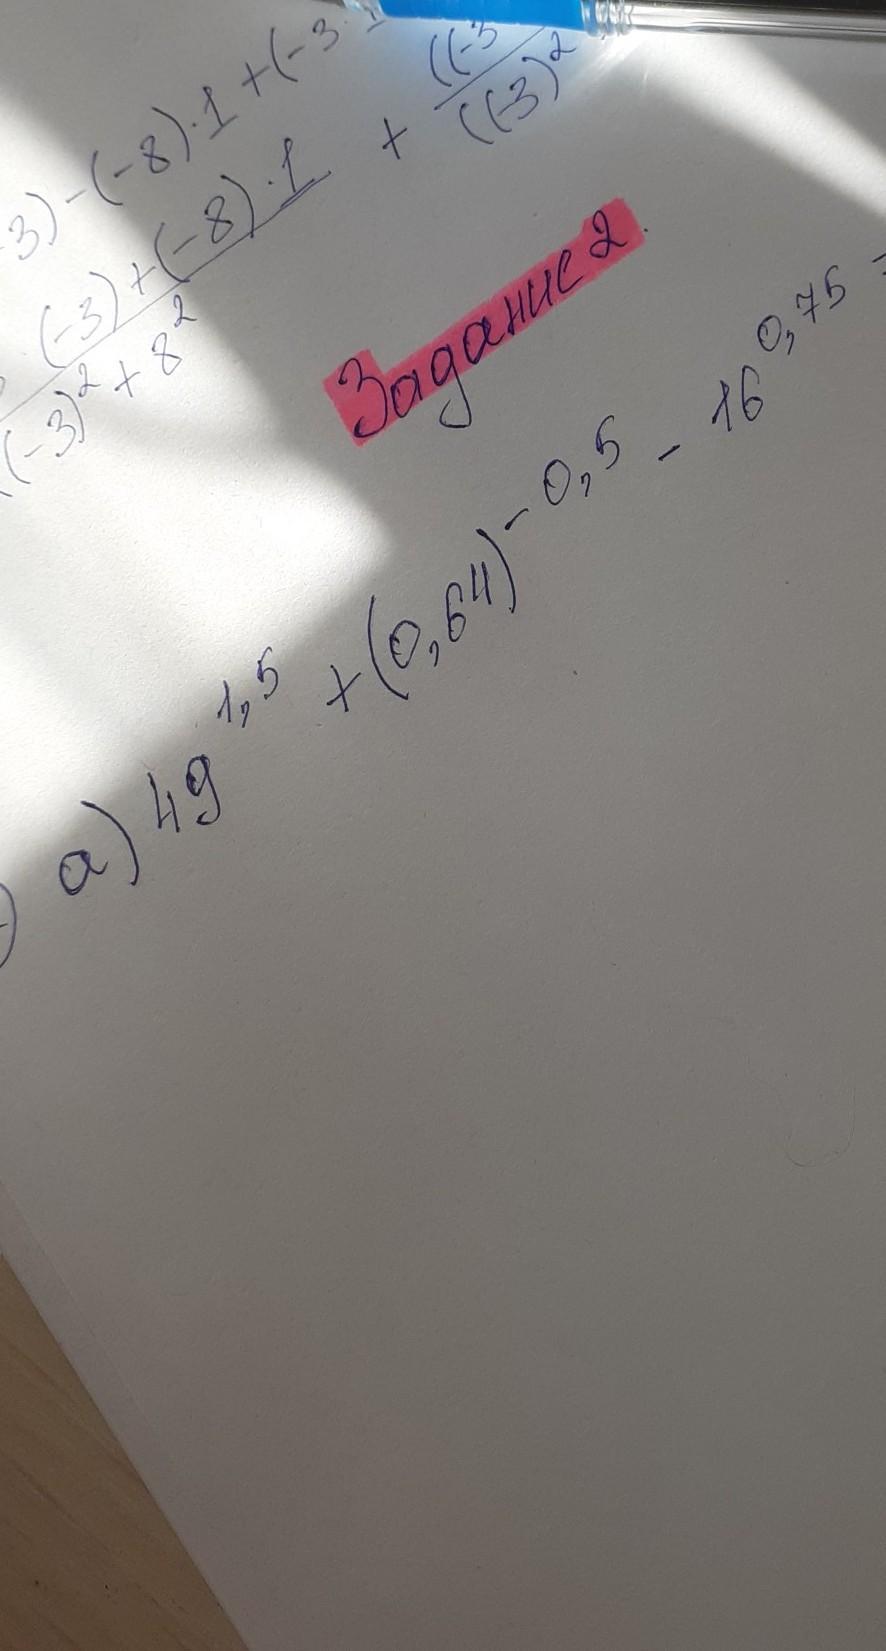 3)-(-8)·1+(-3·1
(-3)+(-8)·1 + ((-3
(-3)²+8² ((-3)²
Задание 2.
а) 49^1,5 + (0,64)^-0,5 - 16^0,75 =